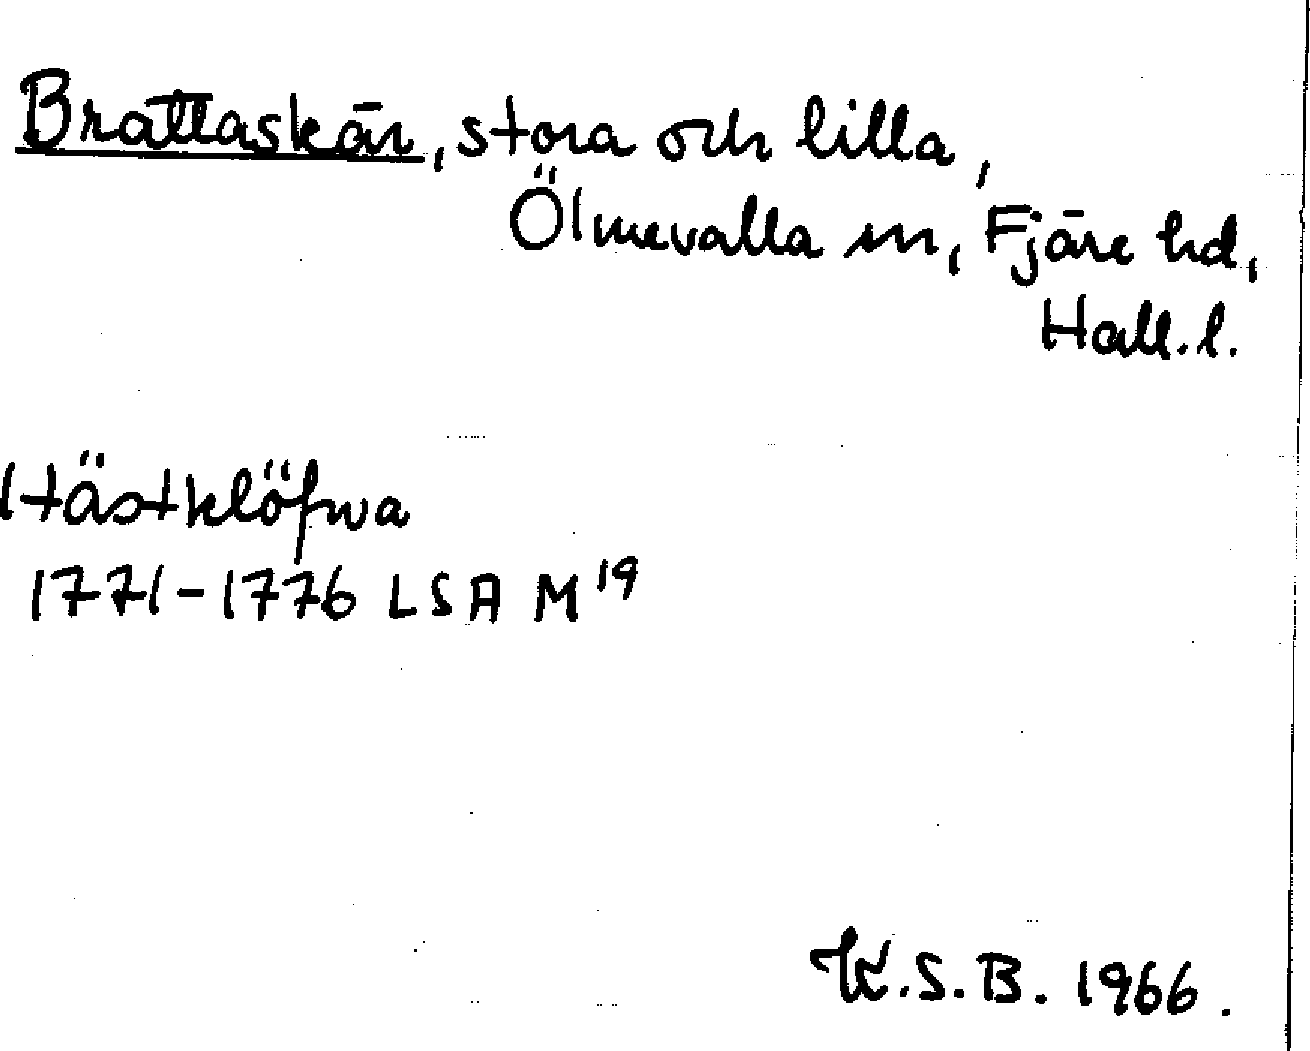 Brattaskär, stora och lilla,
Ölmevalla sn, Fjäre hd,
Hall. l.
Hästklöfwa
1771-1776 LSA M¹⁹
K.S.B. 1966.